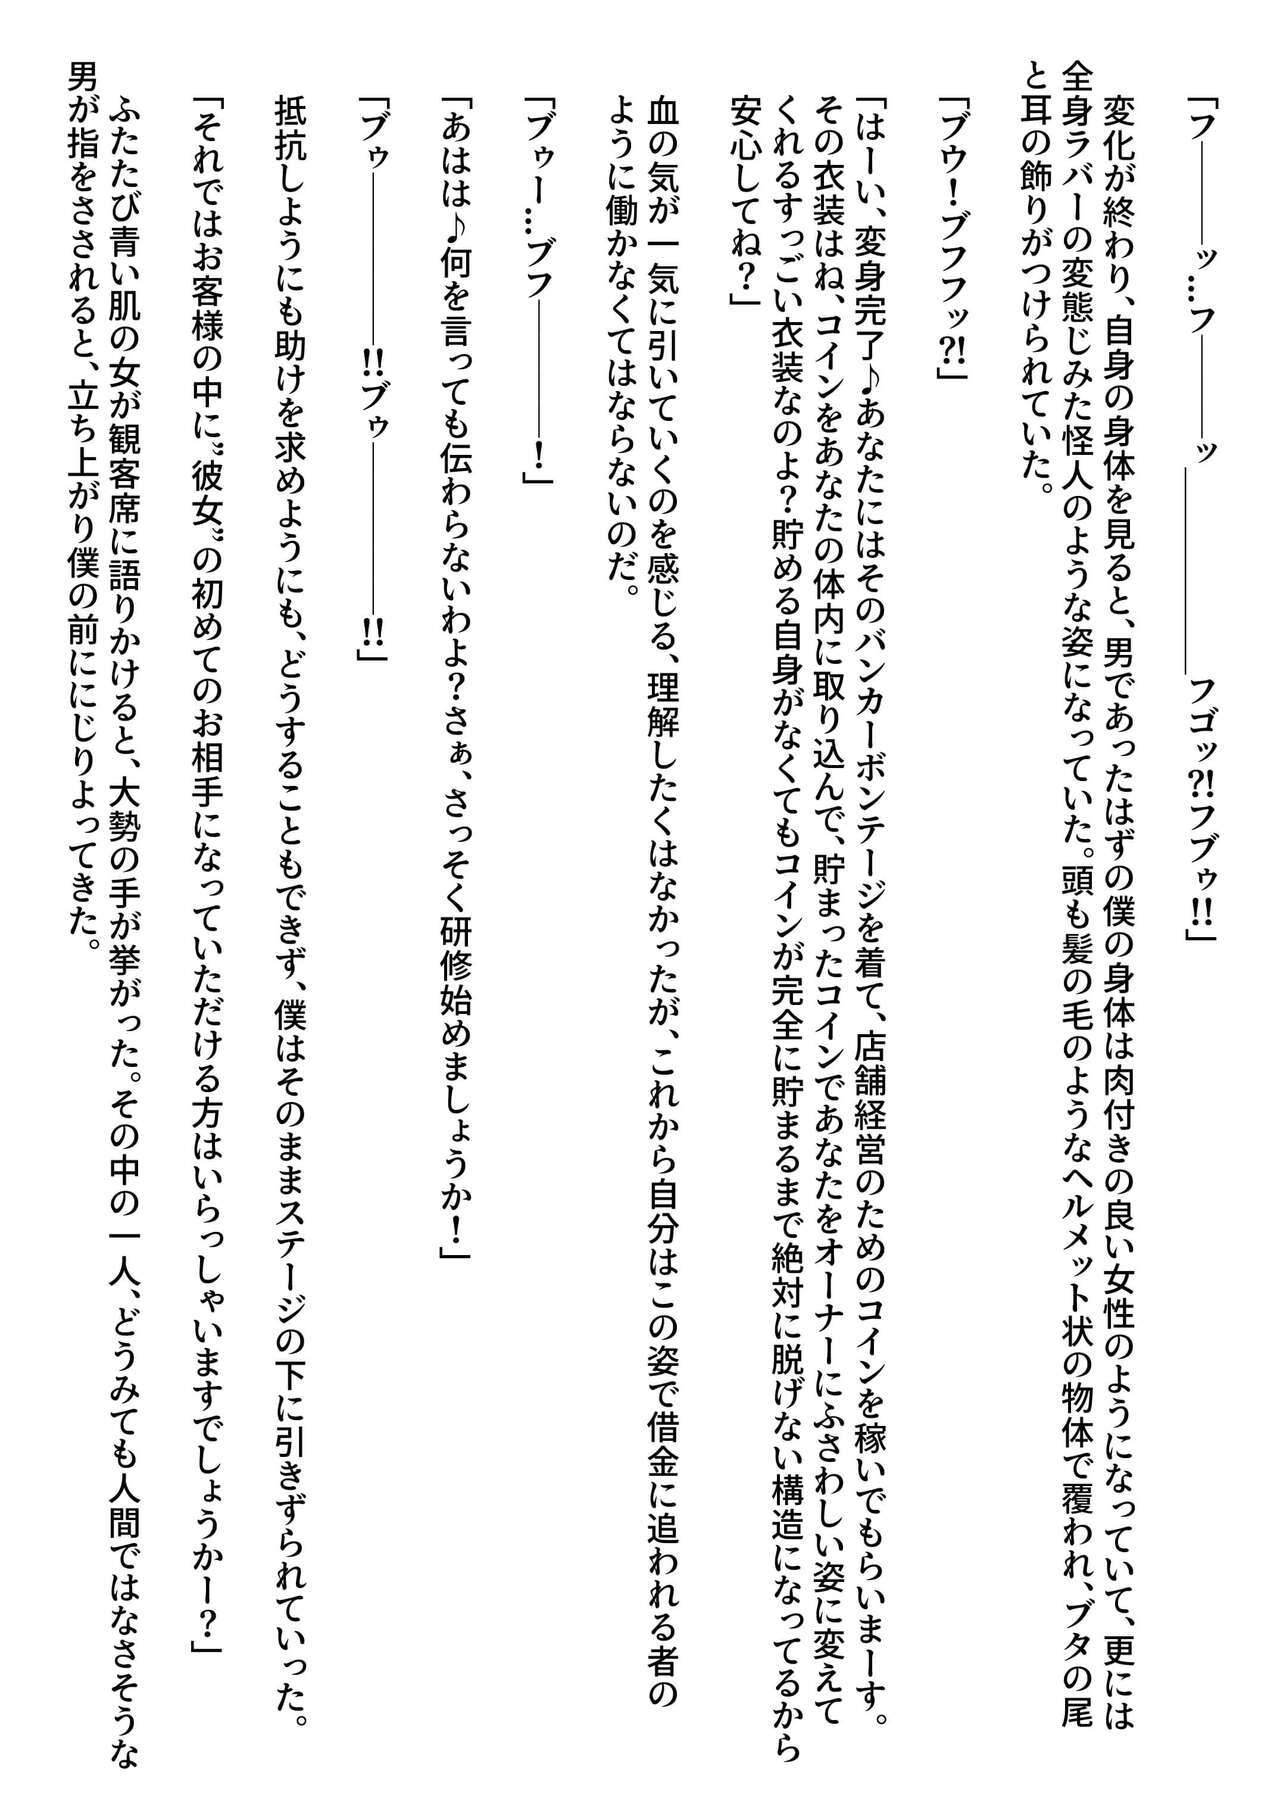 「フ―――ッ…フ―――ッ――――――フゴッ?!フブゥ!!」
変化が終わり、自身の身体を見ると、男であったはずの僕の身体は肉付きの良い女性のようになっていて、更には
全身ラバーの変態じみた怪人のような姿になっていた。頭も髪の毛のようなヘルメット状の物体で覆われ、ブタの尾
と耳の飾りがつけられていた。
「ブウ！ブフフッ?!」
「はーい、変身完了♪あなたにはそのバンカーボンテージを着て、店舗経営のためのコインを稼いでもらいまーす。
その衣装はね、コインをあなたの体内に取り込んで、貯まったコインであなたをオーナーにふさわしい姿に変えて
くれるすっごい衣装なのよ？貯める自身がなくてもコインが完全に貯まるまで絶対に脱げない構造になってるから
安心してね？」
血の気が一気に引いていくのを感じる、理解したくはなかったが、これから自分はこの姿で借金に追われる者の
ように働かなくてはならないのだ。
「ブゥー…ブフ――――！」
「あはは♪何を言っても伝わらないわよ？さぁ、さっそく研修始めましょうか！」
「ブゥ―――――!!ブゥ―――――!!」
抵抗しようにも助けを求めようにも、どうすることもできず、僕はそのままステージの下に引きずられていった。
「それではお客様の中に〝彼女〟の初めてのお相手になっていただける方はいらっしゃいますでしょうかー？」
ふたたび青い肌の女が観客席に語りかけると、大勢の手が挙がった。その中の一人、どうみても人間ではなさそうな
男が指をさされると、立ち上がり僕の前ににじりよってきた。